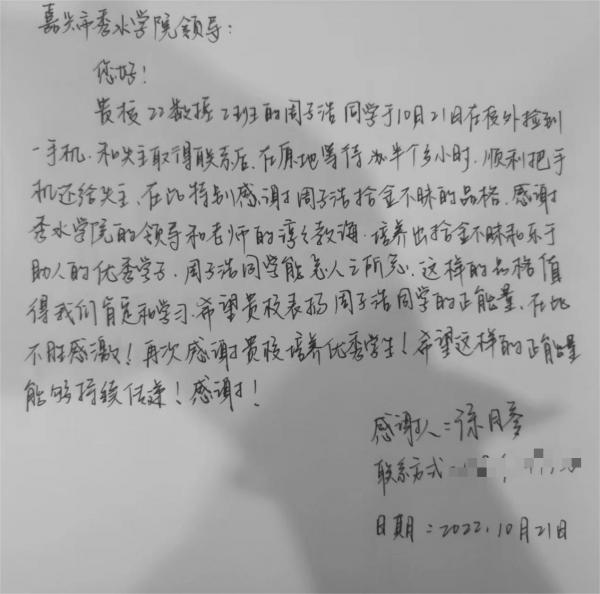 嘉兴市秀水学院领导:
您好!
贵校22数据2班的周子浩同学于10月21日在校外捡到
一手机.和失主取得联系后.在原地等待半个多小时.顺利把手
机还给失主.在此特别感谢周子浩拾金不昧的品格.感谢
秀水学院的领导和老师的谆谆教诲.培养出拾金不昧和乐于
助人的优秀学子.周子浩同学能急人之所急.这样的品格值
得我们肯定和学习.希望贵校表扬周子浩同学的正能量.在此
不胜感激!再次感谢贵校培养优秀学生!希望这样的正能量
能够持续传递!感谢!
感谢人:徐月
联系方式
日期:2022.10月21日